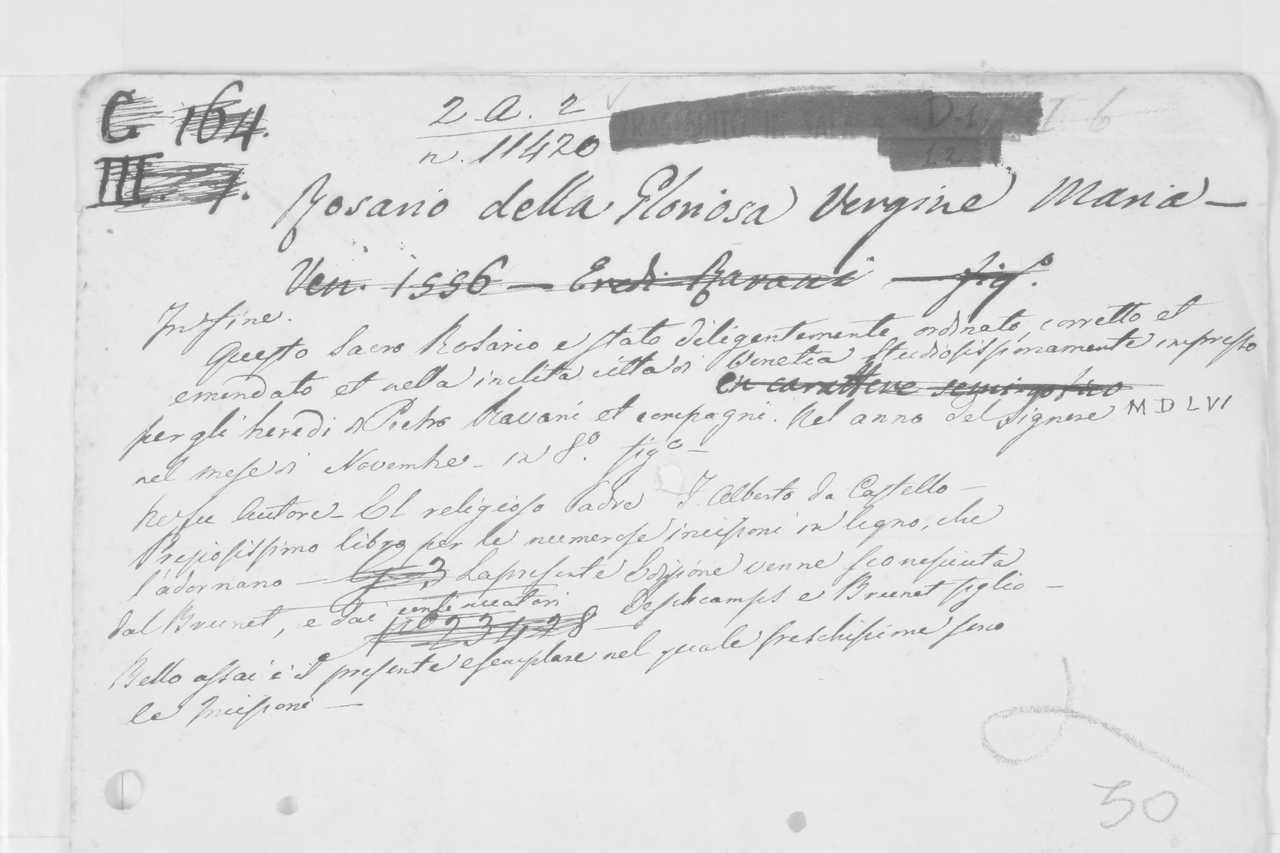 C 164. 2. a. 2 D. 1 I 6
III. 7. n. 11420 1. 2
Rosario della Gloriosa Vergine Maria —
Ven. 1556 — Eredi Ravani — fig.º
In fine.
Questo Sacro Rosario e stato diligentemente ordinato, corretto et
emendato et nella inclita citta di Venetia studiosissimamente impresso
in carattere semigotico
per gli heredi di Pietro Ravani et compagni. Nel anno del Signore MDLVI
nel mese di Novembre – in 8.º figº –
Ne fu Autore – El religioso Padre F. Alberto da Castello –
Preziosissimo libro per le numerose incisioni in legno, che
l'adornano – La presente Edizione venne sconosciuta
dal Brunet, e dai continuatori Deschamps e Brunet figlio –
nº 23428
Bello assai è il presente esemplare nel quale freschissime sono
le Incisioni –
50